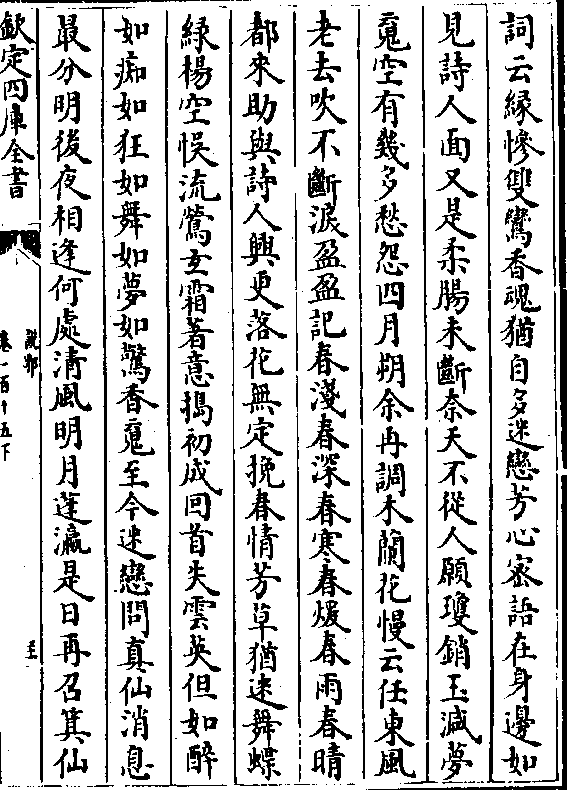 詞云緑慘雙鸞香魂猶自多迷戀芳心密語在身邊如
見詩人面又是柔腸未斷奈天不從人願瓊銷玉減夢
䰟空有幾多愁怨四月朔余再調木蘭花慢云任東風
老去吹不斷淚盈盈記春淺春深春寒春煖春雨春晴
都來助與詩人興更落花無定挽春情芳草猶迷舞蝶
緑楊空悞流鶯玄霜著意搗初成回首失雲英但如醉
如痴如狂如舞如夢如驚香䰟至今迷戀問真仙消息
最分明後夜相逢何處清風明月蓬瀛是日再召箕仙
欽定四庫全書
説郛
卷一百十五下